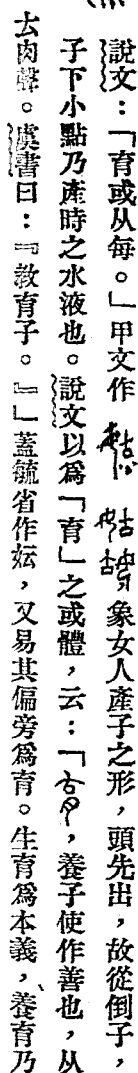 說文：「育或从每。」甲文作 象女人產子之形，頭先出，故從倒子，
子下小點乃產時之水液也。說文以爲「育」之或體，云：「，養子使作善也，从
𠫓肉聲。虞書曰：『教育子。』」蓋毓省作㚬，又易其偏旁爲育。生育爲本義，養育乃